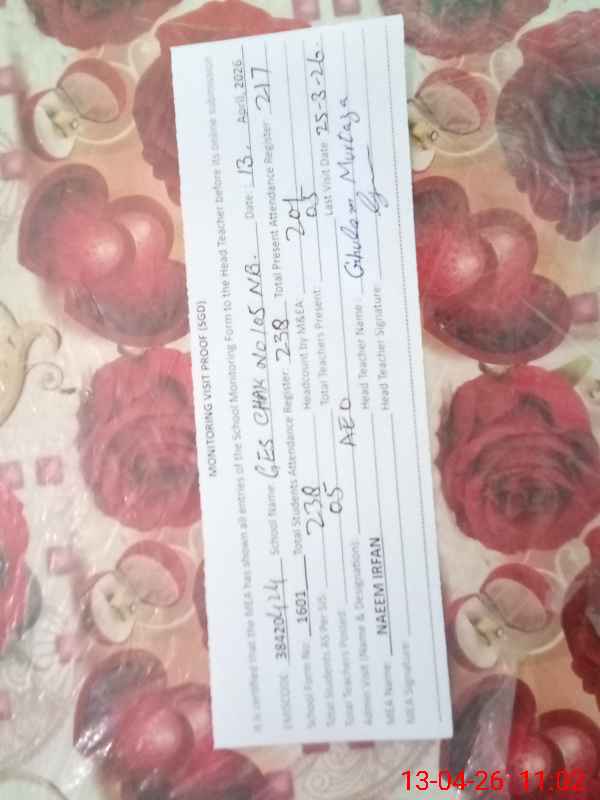 MONITORING VISIT PROOF (SGD)
It is certified that the MEA has shown all entries of the School Monitoring Form to the Head Teacher before its online submission
EMISCODE: 38420424 School Name: GES CHAK NO 105 NB. Date: 13, April, 2026
School Form No: 1601 Total Students Attendance Register: 238 Total Present Attendance Register: 217
Total Students AS Per SIS: 238 Headcount by M&EA: 201
Total Teachers Posted: 05 Total Teachers Present: 05 Last Visit Date 25-3-26.
Admin Visit (Name & Designation): AEO
MEA Name: NAEEM IRFAN Head Teacher Name: Ghulam Murtaza
MEA Signature: Head Teacher Signature:
13-04-26 11:02